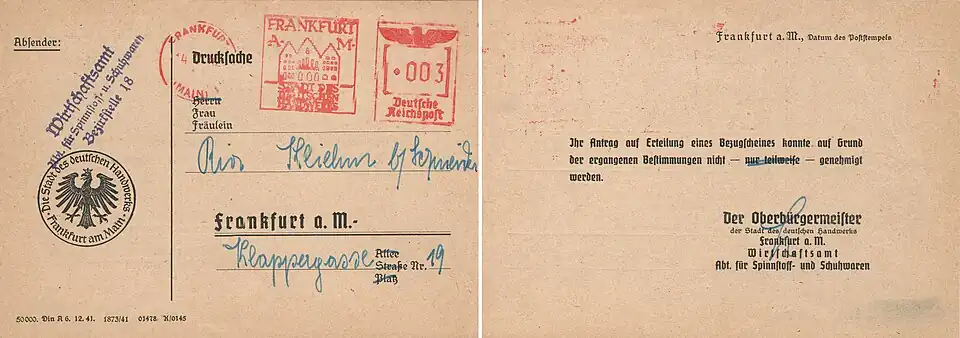 Absender:
Wirtschaftsamt
Abt. für Spinnstoff- u. Schuhwaren
Bezirksstelle 18
Die Stadt des deutschen Handwerks
· Frankfurt am Main ·
FRANKFURT
(MAIN)
Drucksache
FRANKFURT
A· M·
STADT DES
DEUTSCHEN
HANDWERKS
003
Deutsche
Reichspost
Herrn
Frau
Fräulein
Kliehm b/ Schneider
Frankfurt a. M.-
Klappergasse
Allee
Straße Nr. 19
Platz
50000. Din A 6. 12. 41. 1873/41 01478. A/0145
Frankfurt a. M., Datum des Poststempels
Ihr Antrag auf Erteilung eines Bezugscheines konnte auf Grund
der ergangenen Bestimmungen nicht — nur teilweise — genehmigt
werden.
Der Oberbürgermeister
der Stadt des deutschen Handwerks
Frankfurt a. M.
Wirtschaftsamt
Abt. für Spinnstoff- und Schuhwaren